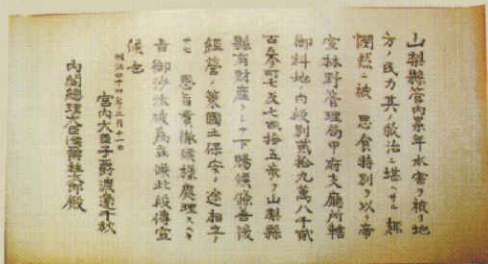 山梨縣管内累年水害ヲ被リ地
方ノ民力其ノ救治ニ堪ヘサル趣
憫然ニ被 思食特別ヲ以テ帝
室林野管理局甲府支廳所轄
御料地ノ内段別貳拾九萬八千貳
百参町七反七畝拾五歩ヲ山梨縣
縣有財産トシテ下賜候條善後
經營ノ策國土保安ノ途相立テ
恩旨貫徹候樣處理スヘキ
旨御沙汰被爲在候此段傳宣
候也
明治四十四年三月十一日
宮内大臣子爵渡邊千秋
内閣總理大臣侯爵桂太郎殿